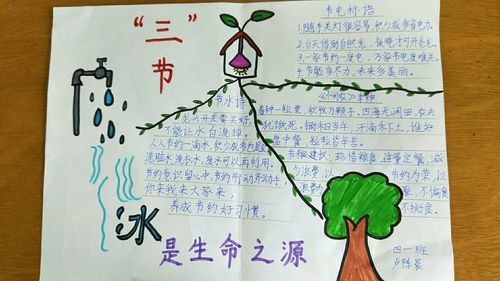 “三”节
节电标语
1.随手关灯很容易,积少成多省电力。
2.白天借助自然光,夜晚才可开光。
3.一家节约一度电,万家节电度难关。
4.节能多尽力,未来多美丽。
节水诗
怎人开关要关好,
不能让水白流掉。
人人节约一滴水,积少成多
洗脸水、洗衣水,废水可以再利用。
节约意识留心中,节约行动齐动手,
你来我来大家来,
养成节约好习惯。
《悯农》李绅
春种一粒粟,秋收万颗子。四海无闲田,农夫
犹饿死。锄禾日当午,汗滴禾下土。谁知
盘中餐,粒粒皆辛苦。
节粮建议:珍惜粮食,
节约为荣,以
不偏食
不挑食。
水
是生命之源
四一班
卢陈晨